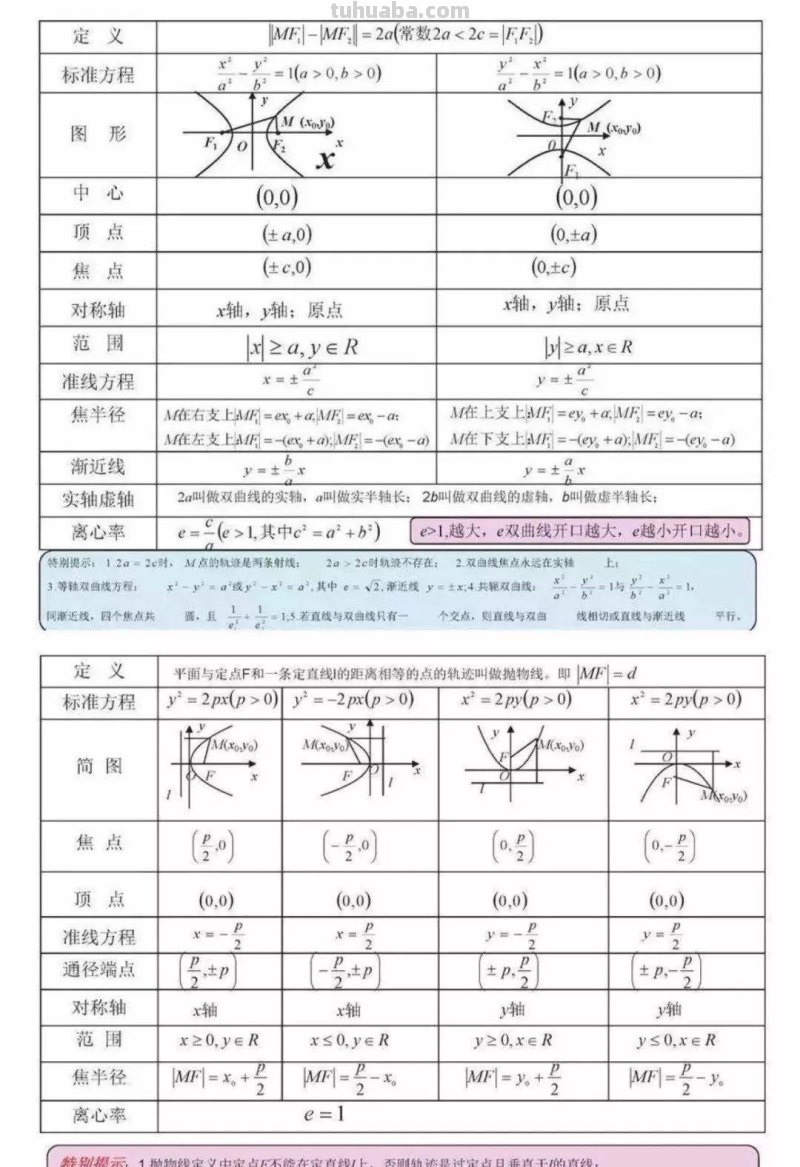 tuhuaba.com
定 义 ||MF₁|－|MF₂||＝2a(常数2a＜2c＝|F₁F₂|)
标准方程 x²/a²－y²/b²＝1(a＞0,b＞0) y²/a²－x²/b²＝1(a＞0,b＞0)
图 形 y M (x₀,y₀) F₁ O F₂ x x F₂ y M (x₀,y₀) 0 x F₁
中 心 (0,0) (0,0)
顶 点 (±a,0) (0,±a)
焦 点 (±c,0) (0,±c)
对称轴 x轴，y轴；原点 x轴，y轴；原点
范 围 |x|≥a,y∈R |y|≥a,x∈R
准线方程 x＝±a²/c y＝±a²/c
焦半径 M在右支上|MF₁|＝ex₀＋a;|MF₂|＝ex₀－a; M在上支上|MF₁|＝ey₀＋a;|MF₂|＝ey₀－a;
M在左支上|MF₁|＝－(ex₀＋a);|MF₂|＝－(ex₀－a) M在下支上|MF₁|＝－(ey₀＋a);|MF₂|＝－(ey₀－a)
渐近线 y＝±b/a x y＝±a/b x
实轴虚轴 2a叫做双曲线的实轴，a叫做实半轴长；2b叫做双曲线的虚轴，b叫做虚半轴长；
离心率 e＝c/a(e＞1,其中c²＝a²＋b²) e>1,越大，e双曲线开口越大，e越小开口越小。
特别提示： 1.2a＝2c时， M点的轨迹是两条射线； 2a＞2c时轨迹不存在； 2.双曲线焦点永远在实轴 上；
3.等轴双曲线方程： x²－y²＝a²或y²－x²＝a²,其中 e＝√2,渐近线 y＝±x;4.共轭双曲线： x²/a²－y²/b²＝1与y²/b²－x²/a²＝1,
同渐近线，四个焦点共 圆，且 1/e₁²＋1/e₂²＝1;5.若直线与双曲线只有一 个交点，则直线与双曲 线相切或直线与渐近线 平行。
定 义 平面与定点F和一条定直线l的距离相等的点的轨迹叫做抛物线。即 |MF|＝d
标准方程 y²＝2px(p＞0) y²＝－2px(p＞0) x²＝2py(p＞0) x²＝2py(p＞0)
简 图 y M(x₀,y₀) O F x l y M(x₀,y₀) F O x l y F M(x₀,y₀) O x l l y O x F M(x₀,y₀)
焦 点 (p/2,0) (－p/2,0) (0,p/2) (0,－p/2)
顶 点 (0,0) (0,0) (0,0) (0,0)
准线方程 x＝－p/2 x＝p/2 y＝－p/2 y＝p/2
通径端点 (p/2,±p) (－p/2,±p) (±p,p/2) (±p,－p/2)
对称轴 x轴 x轴 y轴 y轴
范 围 x≥0,y∈R x≤0,y∈R y≥0,x∈R y≤0,x∈R
焦半径 |MF|＝x₀＋p/2 |MF|＝p/2－x₀ |MF|＝y₀＋p/2 |MF|＝p/2－y₀
离心率 e＝1
特别提示：1.抛物线定义中定点F不能在定直线l上，否则轨迹是过定点且垂直于l的直线；